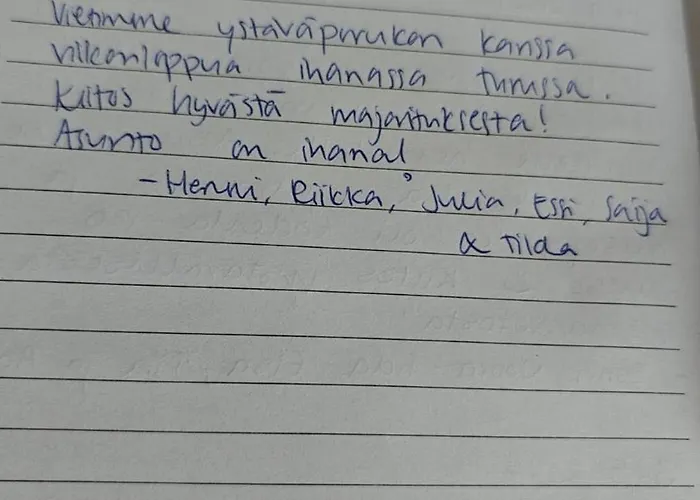 Vietimme ystäväporukan kanssa
viikonloppua ihanassa Turussa.
Kiitos hyvästä majoituksesta!
Asunto on ihana!
-Henni, Riikka, Julia, Essi, Saija
& Tilda